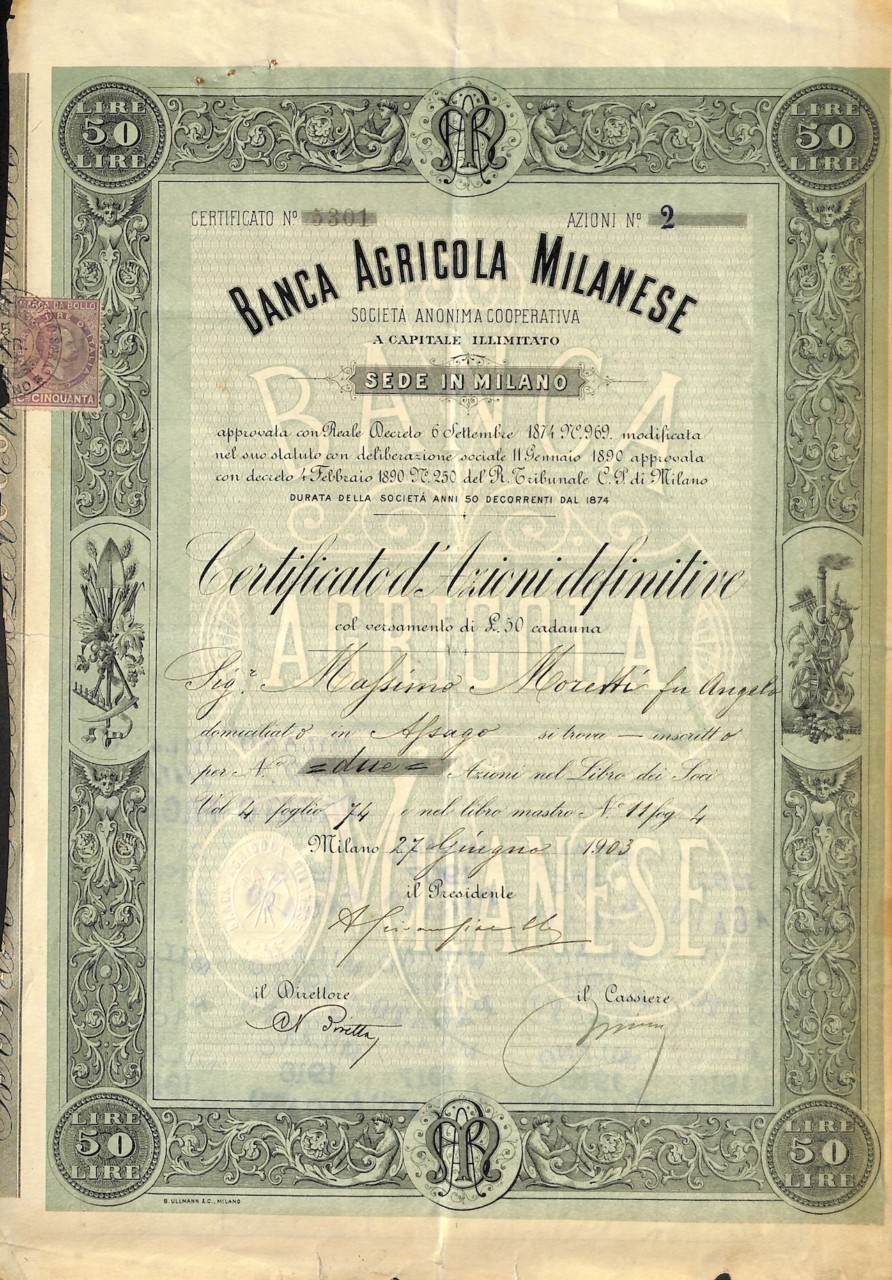 LIRE 50 LIRE
LIRE 50 LIRE
CERTIFICATO Nº 5301 AZIONI Nº 2
BANCA AGRICOLA MILANESE
SOCIETÀ ANONIMA COOPERATIVA
A CAPITALE ILLIMITATO
SEDE IN MILANO
MARCA DA BOLLO
Cᴵ CINQUANTA
approvata con Reale Decreto 6 Settembre 1874 Nº 969. modificata
nel suo statuto con deliberazione sociale 11 Gennaio 1890 approvata
con decreto 4 Febbraio 1890 Nº 250 del R. Tribunale C. P. di Milano
DURATA DELLA SOCIETÀ ANNI 50 DECORRENTI DAL 1874
Certificato d'Azioni definitive
col versamento di £. 50 cadauna
Sigʳ Massimo Moretti fu Angelo
domiciliato in Assago si trova — inscritto
per Nº =due= Azioni nel Libro dei Soci
Vol 4 foglio 74 e nel libro mastro Nº 11 fog 4
Milano 27 Giugno 1903
il Presidente
il Direttore il Cassiere
BANCA
AGRICOLA
MILANESE
LIRE 50 LIRE
LIRE 50 LIRE
B. ULLMANN & C., MILANO